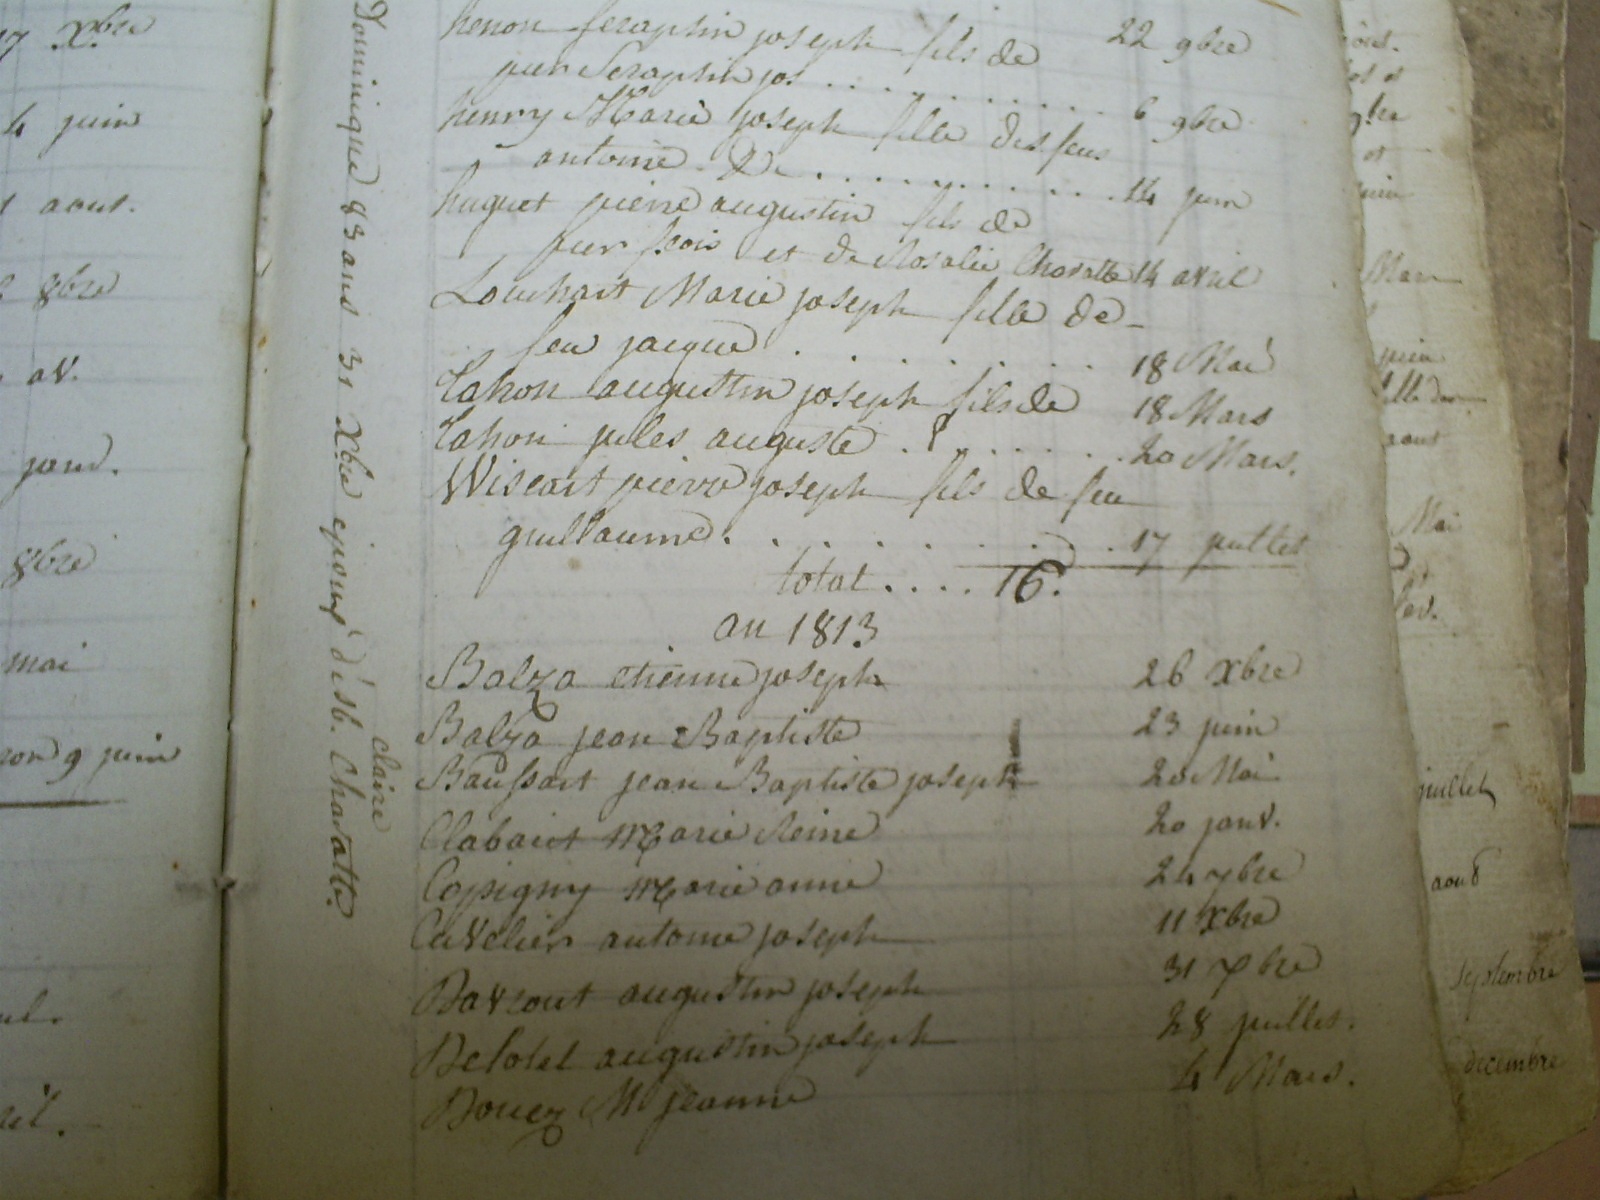 7 Xbre
4 juin
aout.
8bre
av.
janv.
8bre
mai
9 juin
Dominique 83 ans 31 Xbre epoux d'Isb. Charatte
claire
henon seraphin joseph fils de 22 9bre
pier Seraphin jos . . . . . . . . . . 6 9bre
henry Marie joseph fille des feus
antoine & . . . . . . . . . . . 14 juin
huguet pierre augustin fils de
fçois et de Rosalie Charatte 14 avril
Louchart Marie joseph fille de
feu jacque . . . . . . . 18 Mai
Cahon augustin joseph fils de 18 Mars
Cahon jules auguste . . . . . 20 Mars.
Wiscart pierre joseph fils de feu
guillaume . . . . . . . . 17 juillet
total . . . . 16.
an 1813
Balza etienne joseph 26 Xbre
Balza jean Baptiste 23 juin
Baussart jean Baptiste joseph 20 Mai
Clabaut Marie Reine 20 janv.
Copigny Marie anne 24 7bre
Cuvelier antoine joseph 11 Xbre
Davrout augustin joseph 31 7bre
Delolel augustin joseph 28 juillet.
Douez M jeanne 4 Mars.
Mars
juin
aout
Mai
fev.
juillet
aout
septembre
decembre